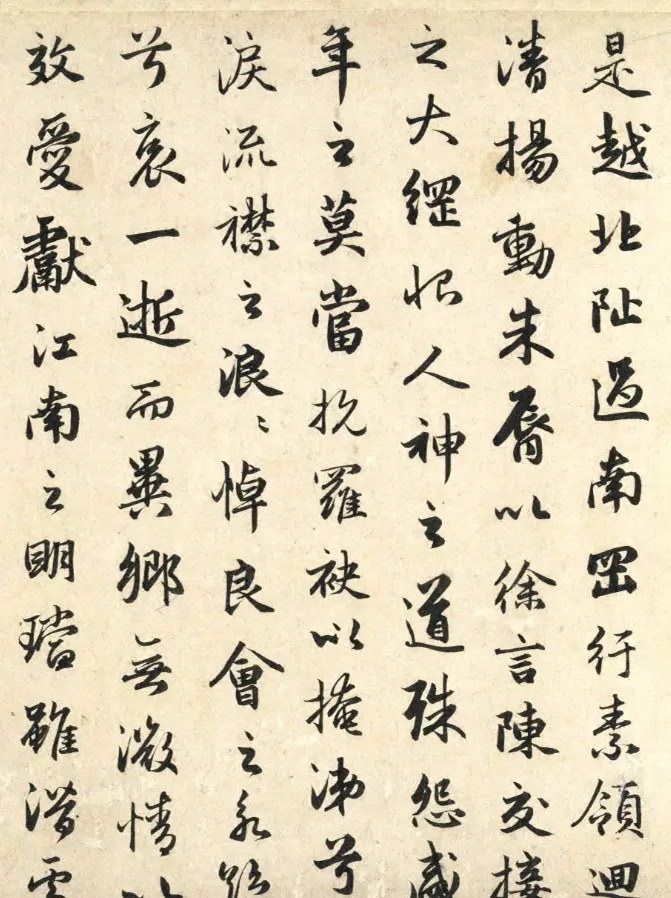 是越北阯過南罡行素領迴
清揚動朱脣以徐言陳交接
之大綱恨人神之道殊怨盛
年之莫當抗羅袂以掩涕兮
淚流襟之浪〻悼良會之永
兮哀一逝而異鄉無微情
效愛獻江南之明璫雖潛